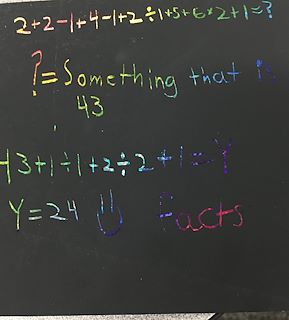 2+2-1+4-1+2÷1+5+6×2+1=?
?=Something that is
43
43+1÷1+2÷2+1=Y
Y=24 facts